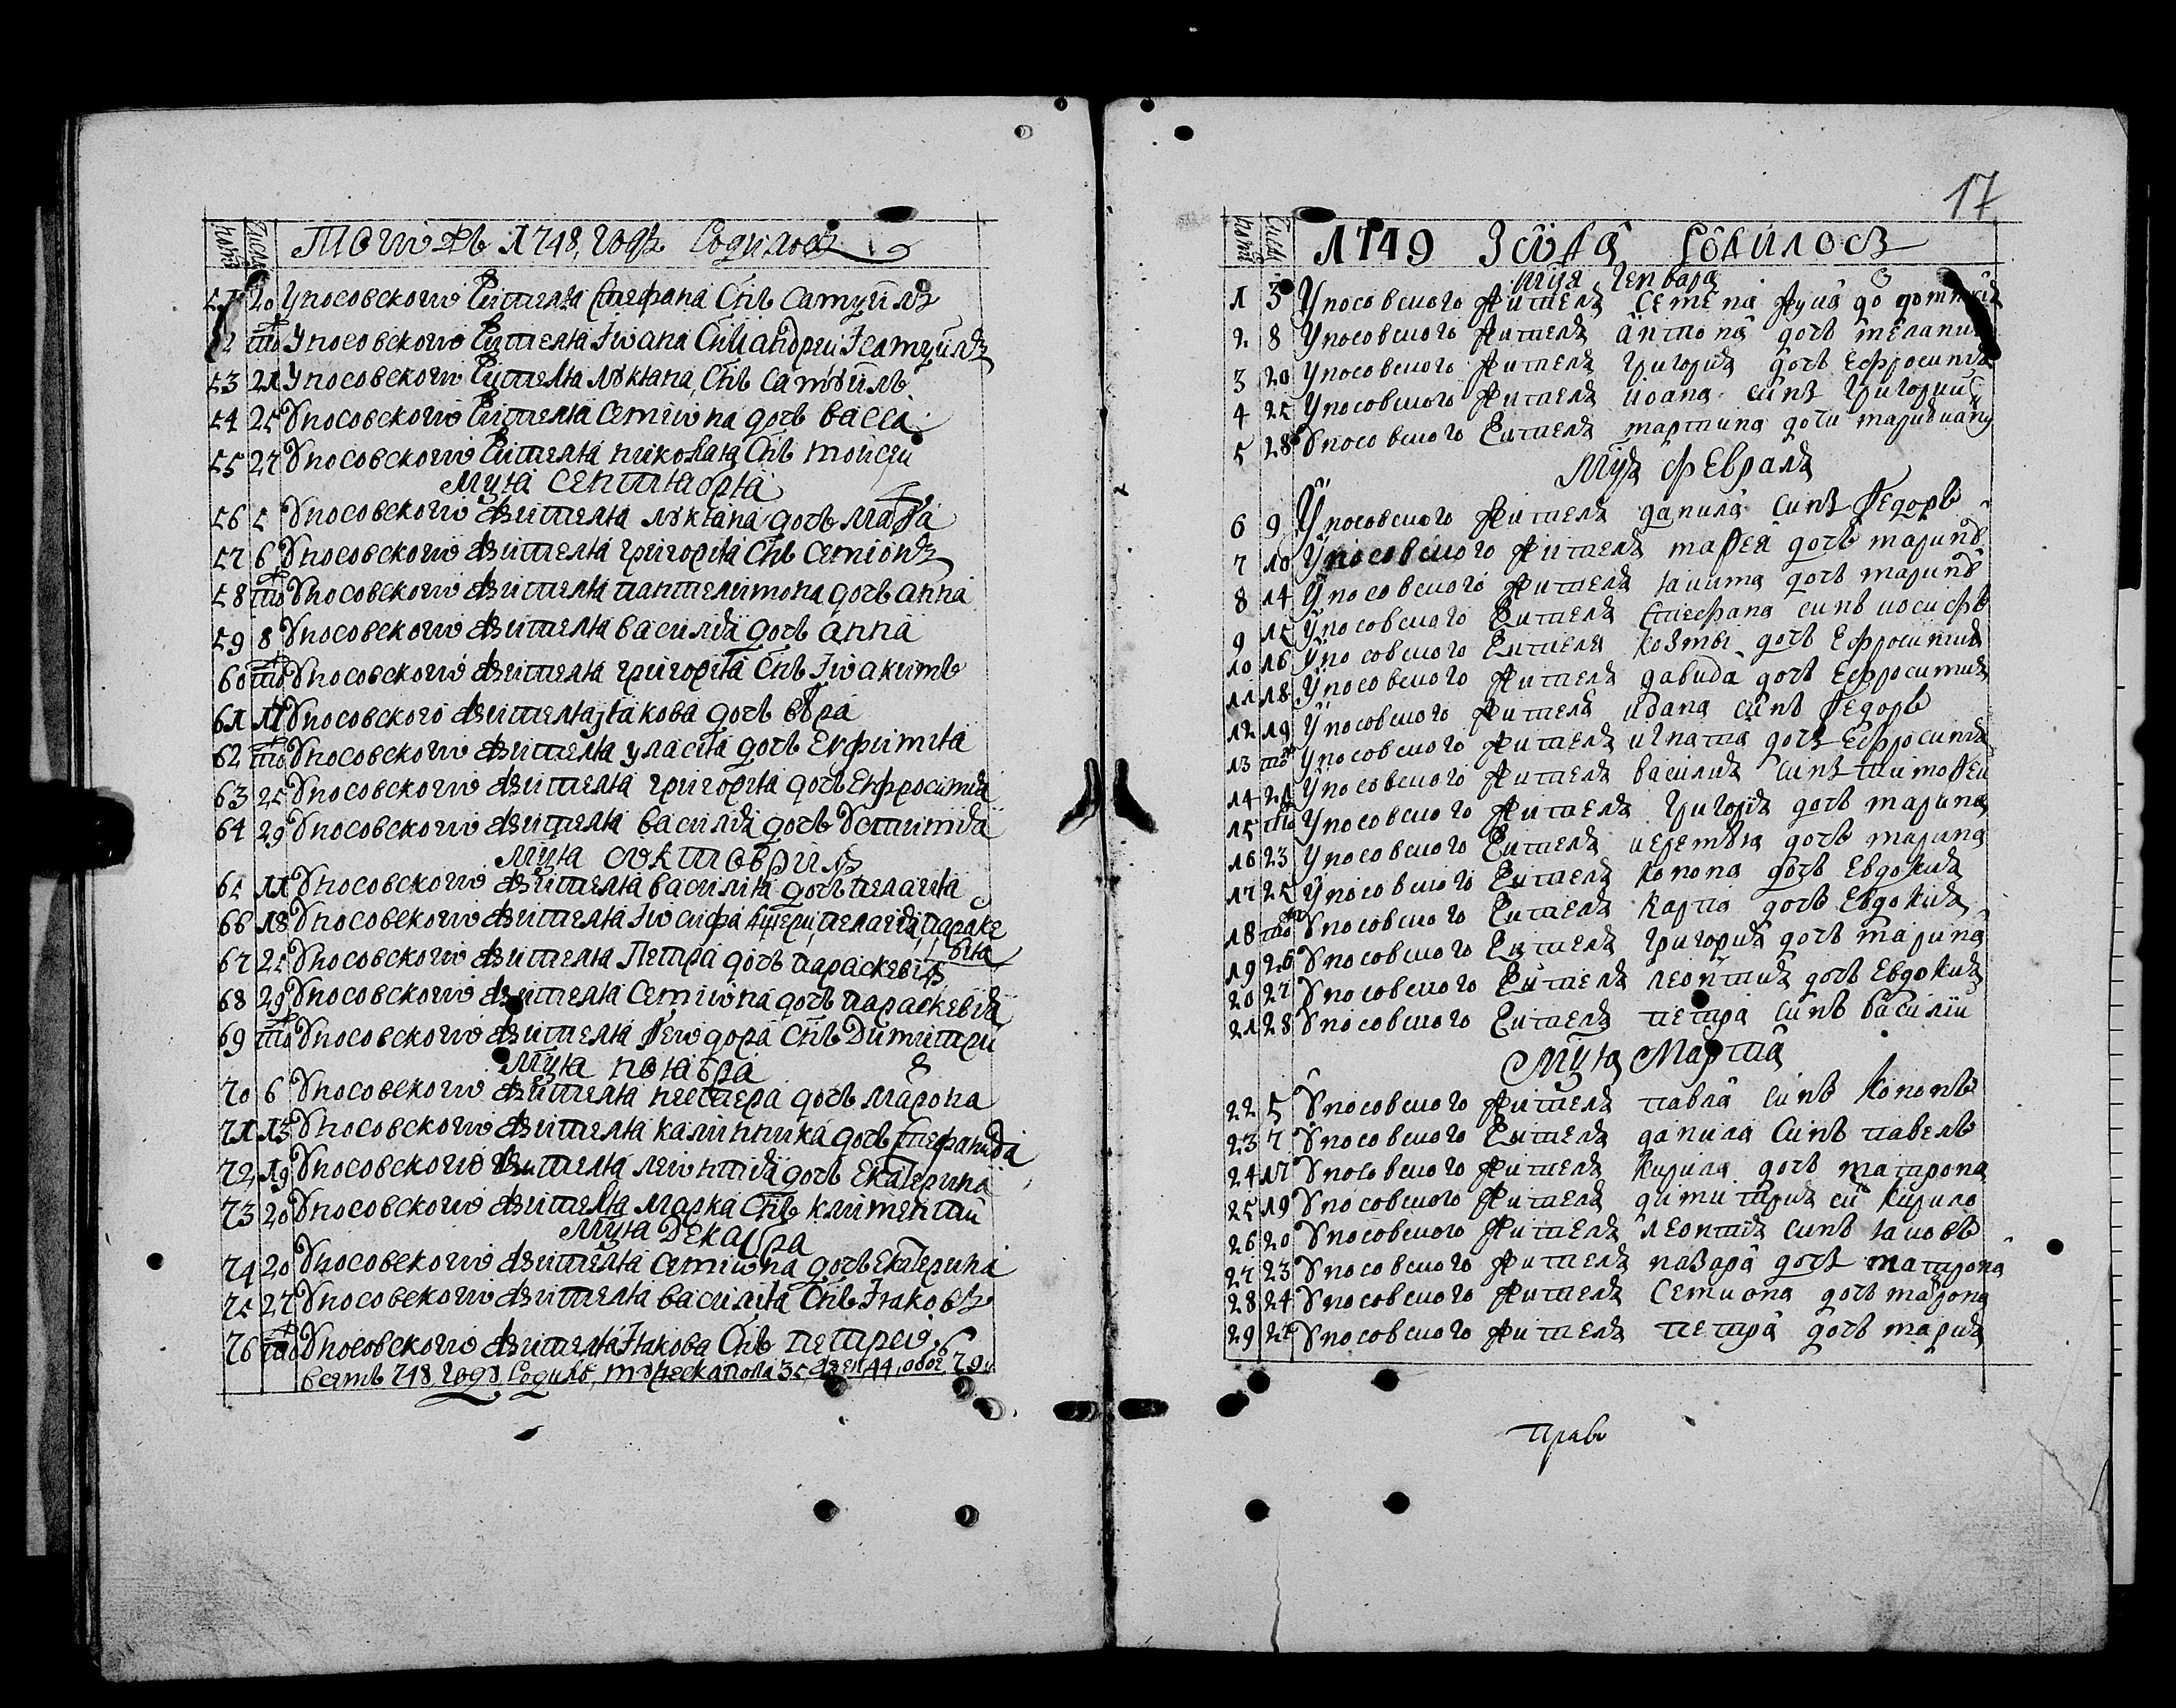 Тогѡ жъ 1748, годꙋ Родилосѧ
51 20 Уносовскогѡ жителѧ Стефана Снъ Самуилъ
52 то Уносовскогѡ жителѧ Іѡана Сни андреи И самуилъ
53 21 Уносовскогѡ жителѧ лꙋкіана, Снъ самꙋилъ
54 25 Уносовскогѡ жителѧ Семиѡна дочъ васса
55 27 Уносовскогѡ жителѧ николаѧ Снъ моисеи
Мцꙗ Септꙗбрꙗ
56 5 Уносовскогѡ жителꙗ лꙋкіана дочъ марѳа
57 6 Уносовскогѡ жителꙗ григоріꙗ Снъ Семіонъ
58 то Уносовскогѡ жителꙗ пантелимона дочъ анна
59 8 Уносовскогѡ жителꙗ василіꙗ дочъ анна
60 то Уносовскогѡ жителꙗ григоріꙗ Снъ Іѡакимъ
61 11 Уносовского жителꙗ ꙗкова дочъ вѣра
62 то Уносовскогѡ жителꙗ уласіꙗ дочъ Евфиміꙗ
63 25 Уносовскогѡ жителꙗ григоріꙗ дочъ Евфросиніѧ
64 29 Уносовскогѡ жителꙗ василіѧ дочъ Устиміѧ
Мцꙗ ѡктовриѧ
65 11 Уносовскогѡ жителꙗ василіꙗ дочъ пелагіꙗ
66 18 Уносовскогѡ жителꙗ Іѡсифа дщери, пелагіѧ, параке
віꙗ
67 25 Уносовскогѡ жителꙗ Петра дочъ параскевіѧ
68 29 Уносовскогѡ жителꙗ Семиѡна дочъ параскевіѧ
69 то Уносовскогѡ жителꙗ Ѳеѡдора Снъ Димитри
Мцꙗ ноꙗбра
70 6 Уносовскогѡ жителꙗ нестера дочъ мадрона
71 13 Уносовскогѡ жителꙗ калинника дочъ Стефанида
72 19 Уносовскогѡ жителꙗ леѡнтіѧ дочъ Екатерина
73 20 Уносовскогѡ жителꙗ марка Снъ климентии
Мцꙗ Декабра
74 20 Уносовскогѡ жителꙗ Семиѡна дочъ Екатерина
75 27 Уносовскогѡ жителꙗ василіꙗ Снъ Іꙗковъ
76 то Уносовскогѡ жителꙗ Іꙗкова Снъ петре
всемъ 748, годꙋ, Родилъ, мꙋжеска пола 35, жен 44, обое, 79
17
1749 Года родилосѧ
Мцꙗ генвара
1 3 Уносовского жителѧ Семена
2 8 Уносовского жителѧ антона дочъ мелани
3 20 Уносовского жителѧ григориѧ дочъ Ефросиниѧ
4 25 Уносовского жителѧ иоана синъ григории
5 28 Уносовского жителѧ мартина дочи
Мцꙗ Февралѧ
6 9 Уносовского жителѧ данила синъ Ѳедоръ
7 10 Уносовского жителѧ маѳея дочъ марина
8 14 Уносовского жителѧ ꙗкима дочъ марина
9 15 Уносовского жителѧ Стефана синъ иосифъ
10 16 Уносовского жителѧ козмы дочъ Ефросиниѧ
11 18 Уносовского жителѧ давида дочъ Ефросиниѧ
12 19 Уносовского жителѧ иоана синъ Ѳедоръ
13 то Уносовского жителѧ игната дочъ Ефросиниѧ
14 21 Уносовского жителѧ василиѧ синъ тимоѳеи
15 то Уносовского жителѧ григориѧ дочъ марина
16 23 Уносовского жителѧ иеремѣꙗ дочъ марина
17 25 Уносовского жителѧ конона дочъ Евдокиѧ
18 то Уносовского жителѧ карпа дочъ Евдокиѧ
19 26 Уносовского жителѧ григориѧ дочъ марина
20 27 Уносовского жителѧ леонтиѧ дочъ Евдокиѧ
21 28 Уносовского жителѧ петра синъ василіи
Мцꙗ Марта
22 5 Уносовского жителѧ павла синъ Кононъ
23 7 Уносовского жителѧ данила синъ павелъ
24 17 Уносовского жителѧ кирила дочъ матрона
25 19 Уносовского жителѧ димитриѧ си кирило
26 20 Уносовского жителѧ леонтиѧ синъ ꙗковъ
27 23 Уносовского жителѧ назара дочъ матрона
28 24 Уносовского жителѧ Семиона дочъ мадрона
29 25 Уносовского жителѧ петра дочъ мариѧ